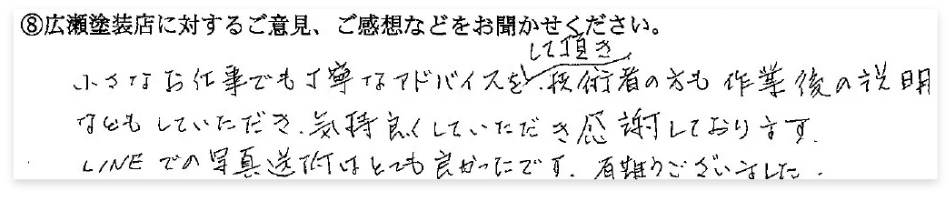 ⑧広瀬塗装店に対するご意見、ご感想などをお聞かせください。
して頂き
小さなお仕事でも丁寧なアドバイスを、技術者の方も作業後の説明
などもしていただき、気持良くしていただき感謝しております。
LINEでの写真送付はとても良かったです。有難うございました。